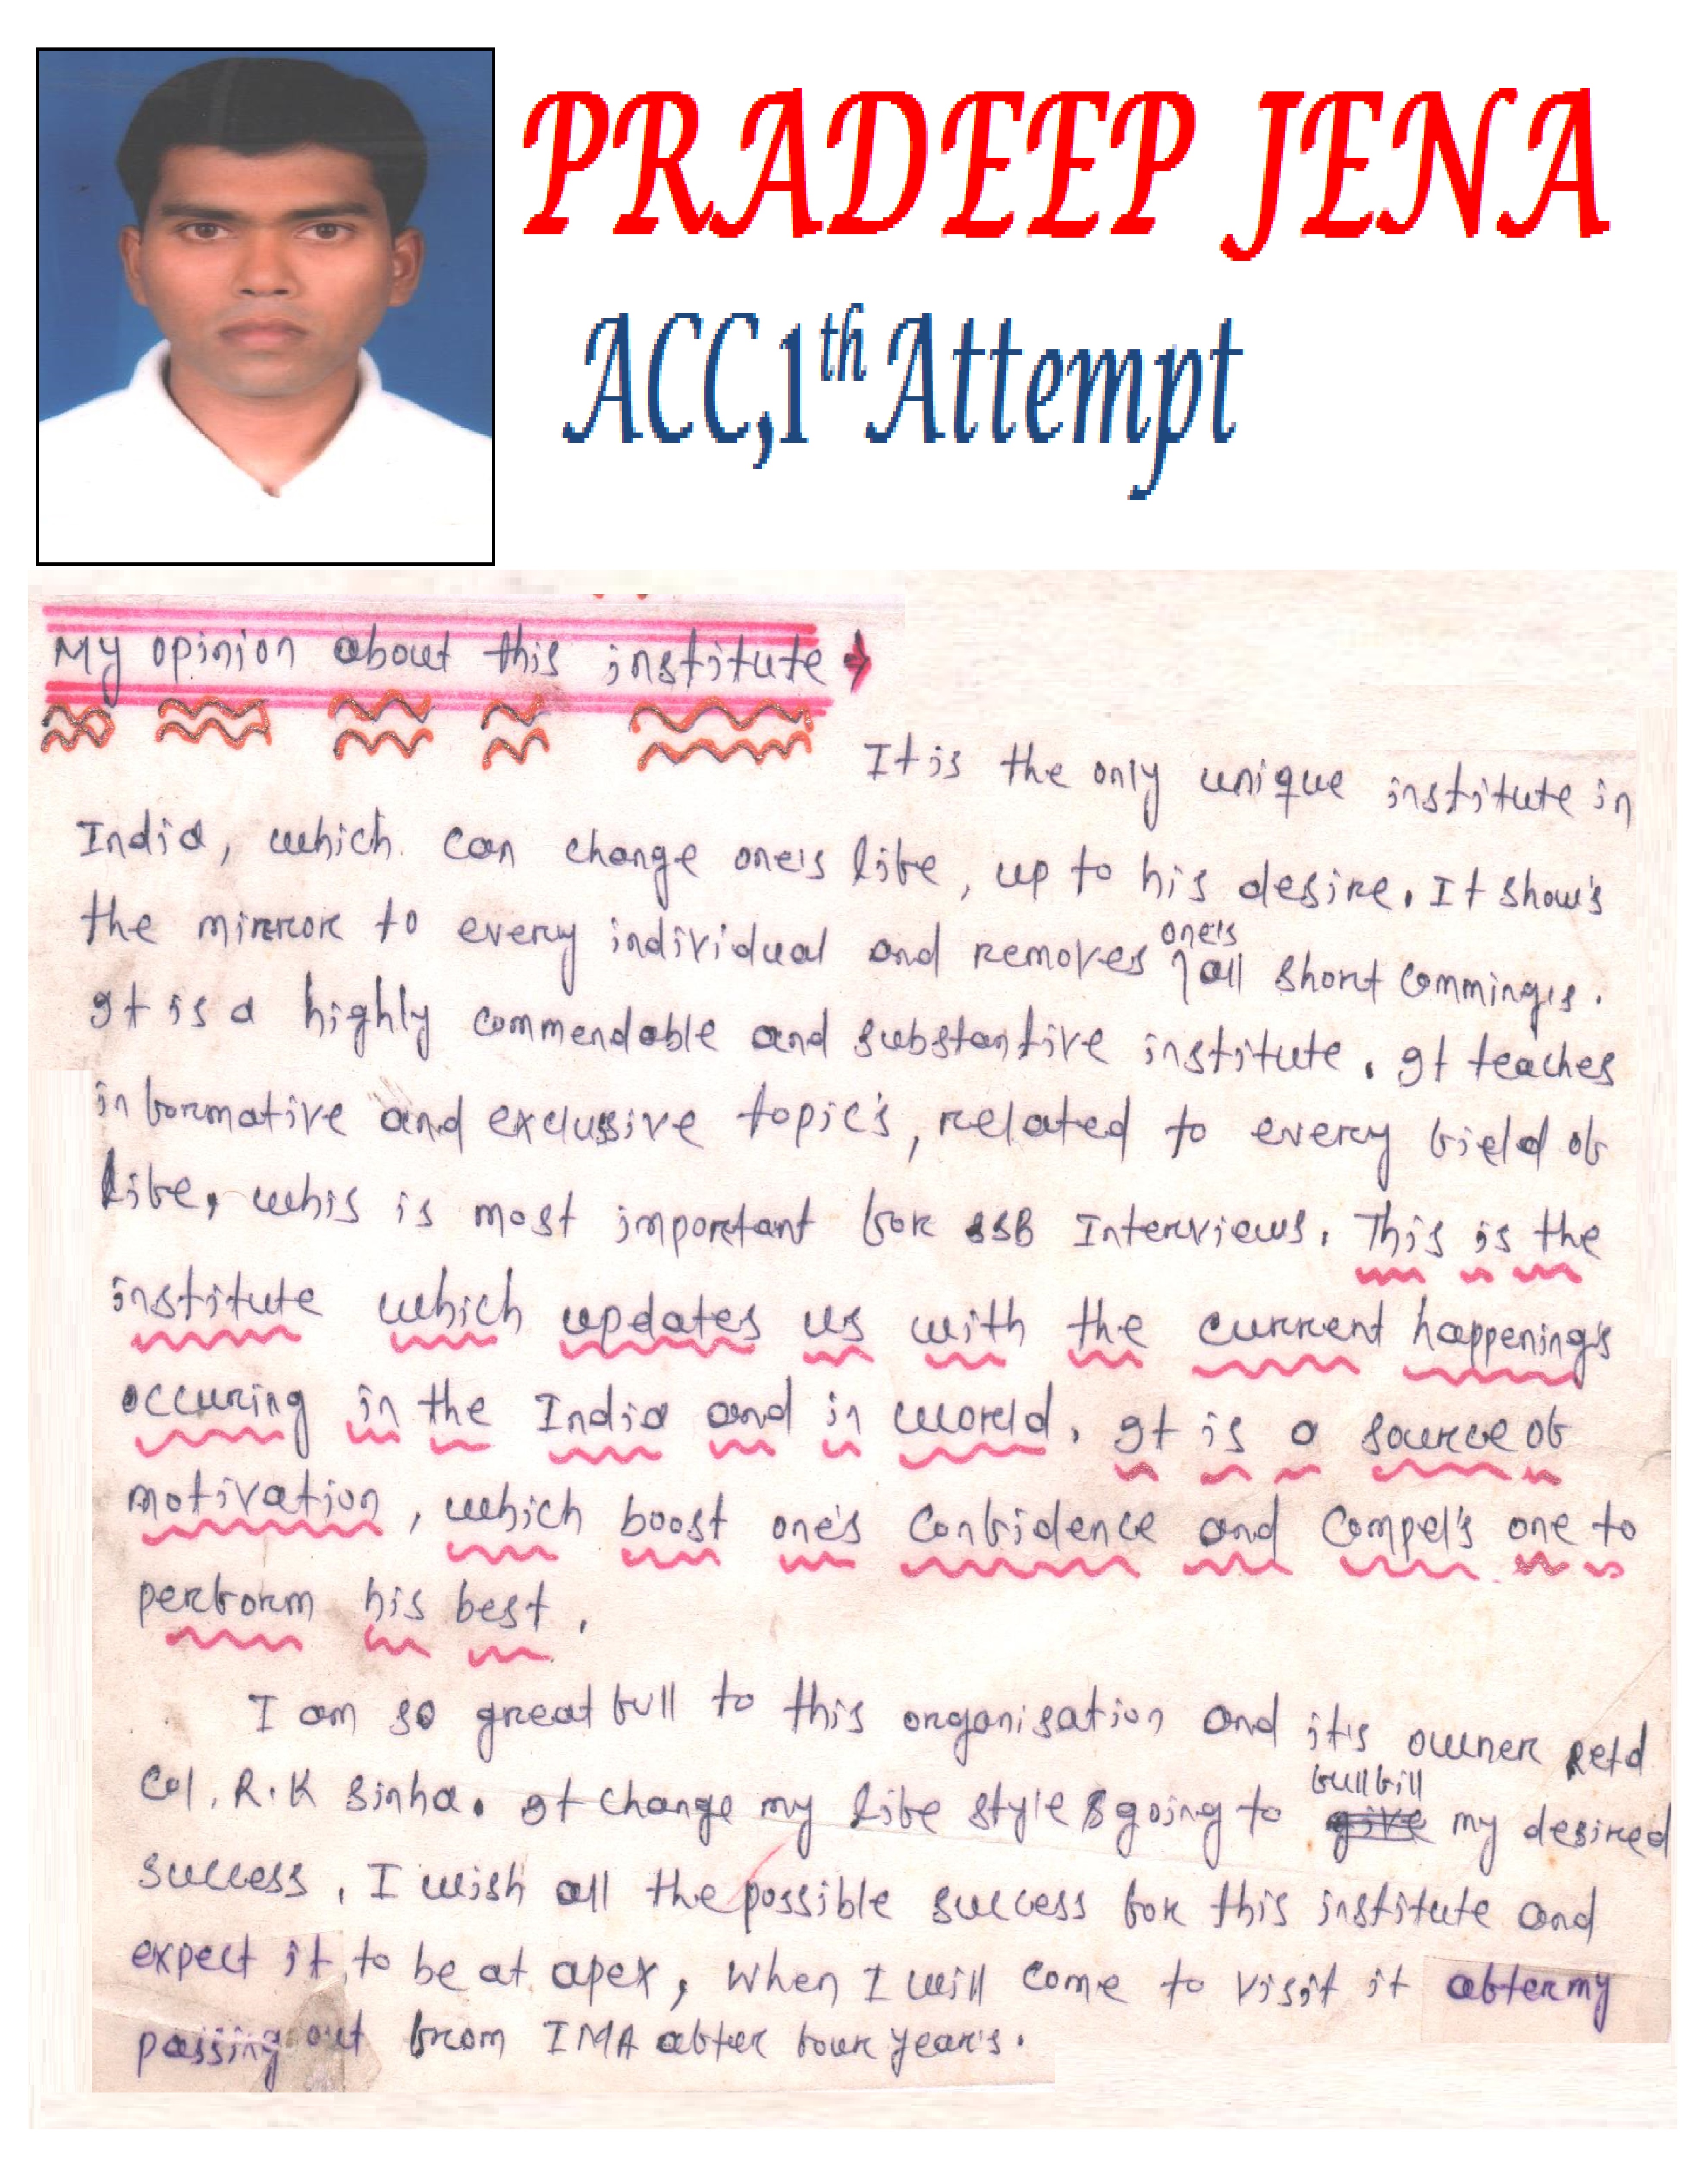 PRADEEP JENA
ACC,1th Attempt
My opinion about this institute →
It is the only unique institute in
India, which can change one's life, up to his desire. It show's
the mirror to every individual and removes one's all short comming's.
It is a highly commendable and substantive institute. It teaches
informative and exclusive topic's, related to every field of
life, whis is most important for SSB Interviews. This is the
institute which updates us with the current happening's
occuring in the India and in world. It is a source of
motivation, which boost one's confidence and compel's one to
perform his best.
I am so great full to this organisation and it's owner Retd
Col. R.K Sinha. It change my life style & going to fullfill my desired
success. I wish all the possible success for this institute and
expect it to be at apex, when I will come to visit it after my
passing out from IMA after four year's.